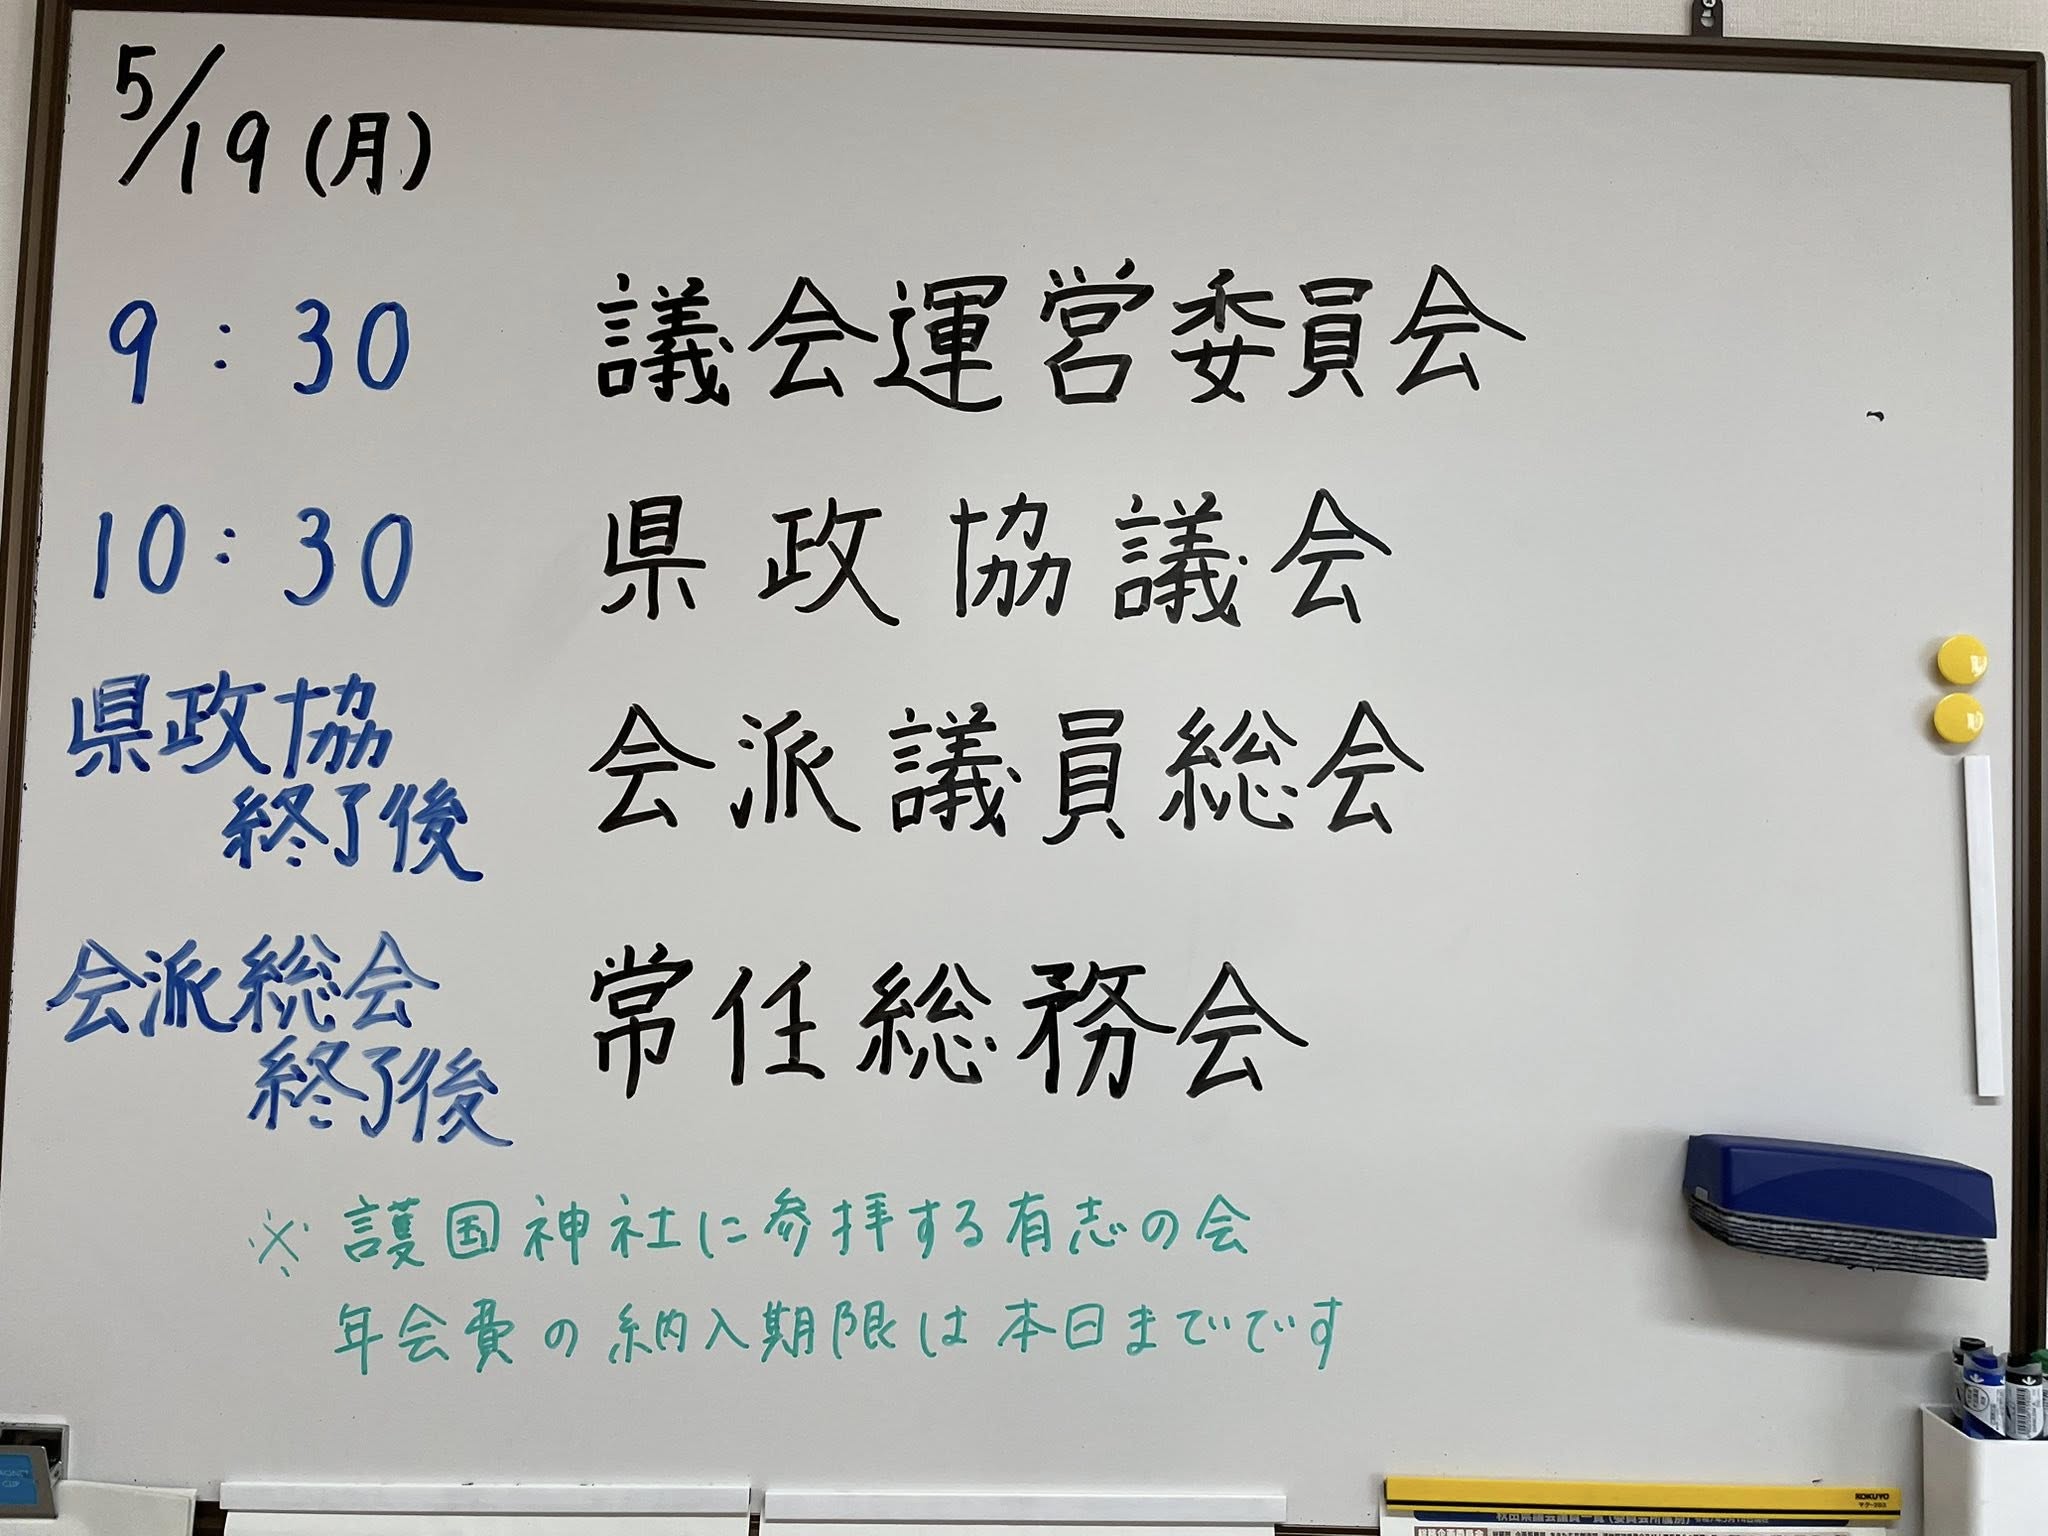 5/19(月)
9:30 議会運営委員会
10:30 県政協議会
県政協
終了後 会派議員総会
会派総会
終了後 常任総務会
※ 護国神社に参拝する有志の会
年会費の納入期限は本日までです
KOKUYO
秋田県議会議員一覧(委員会所属別)